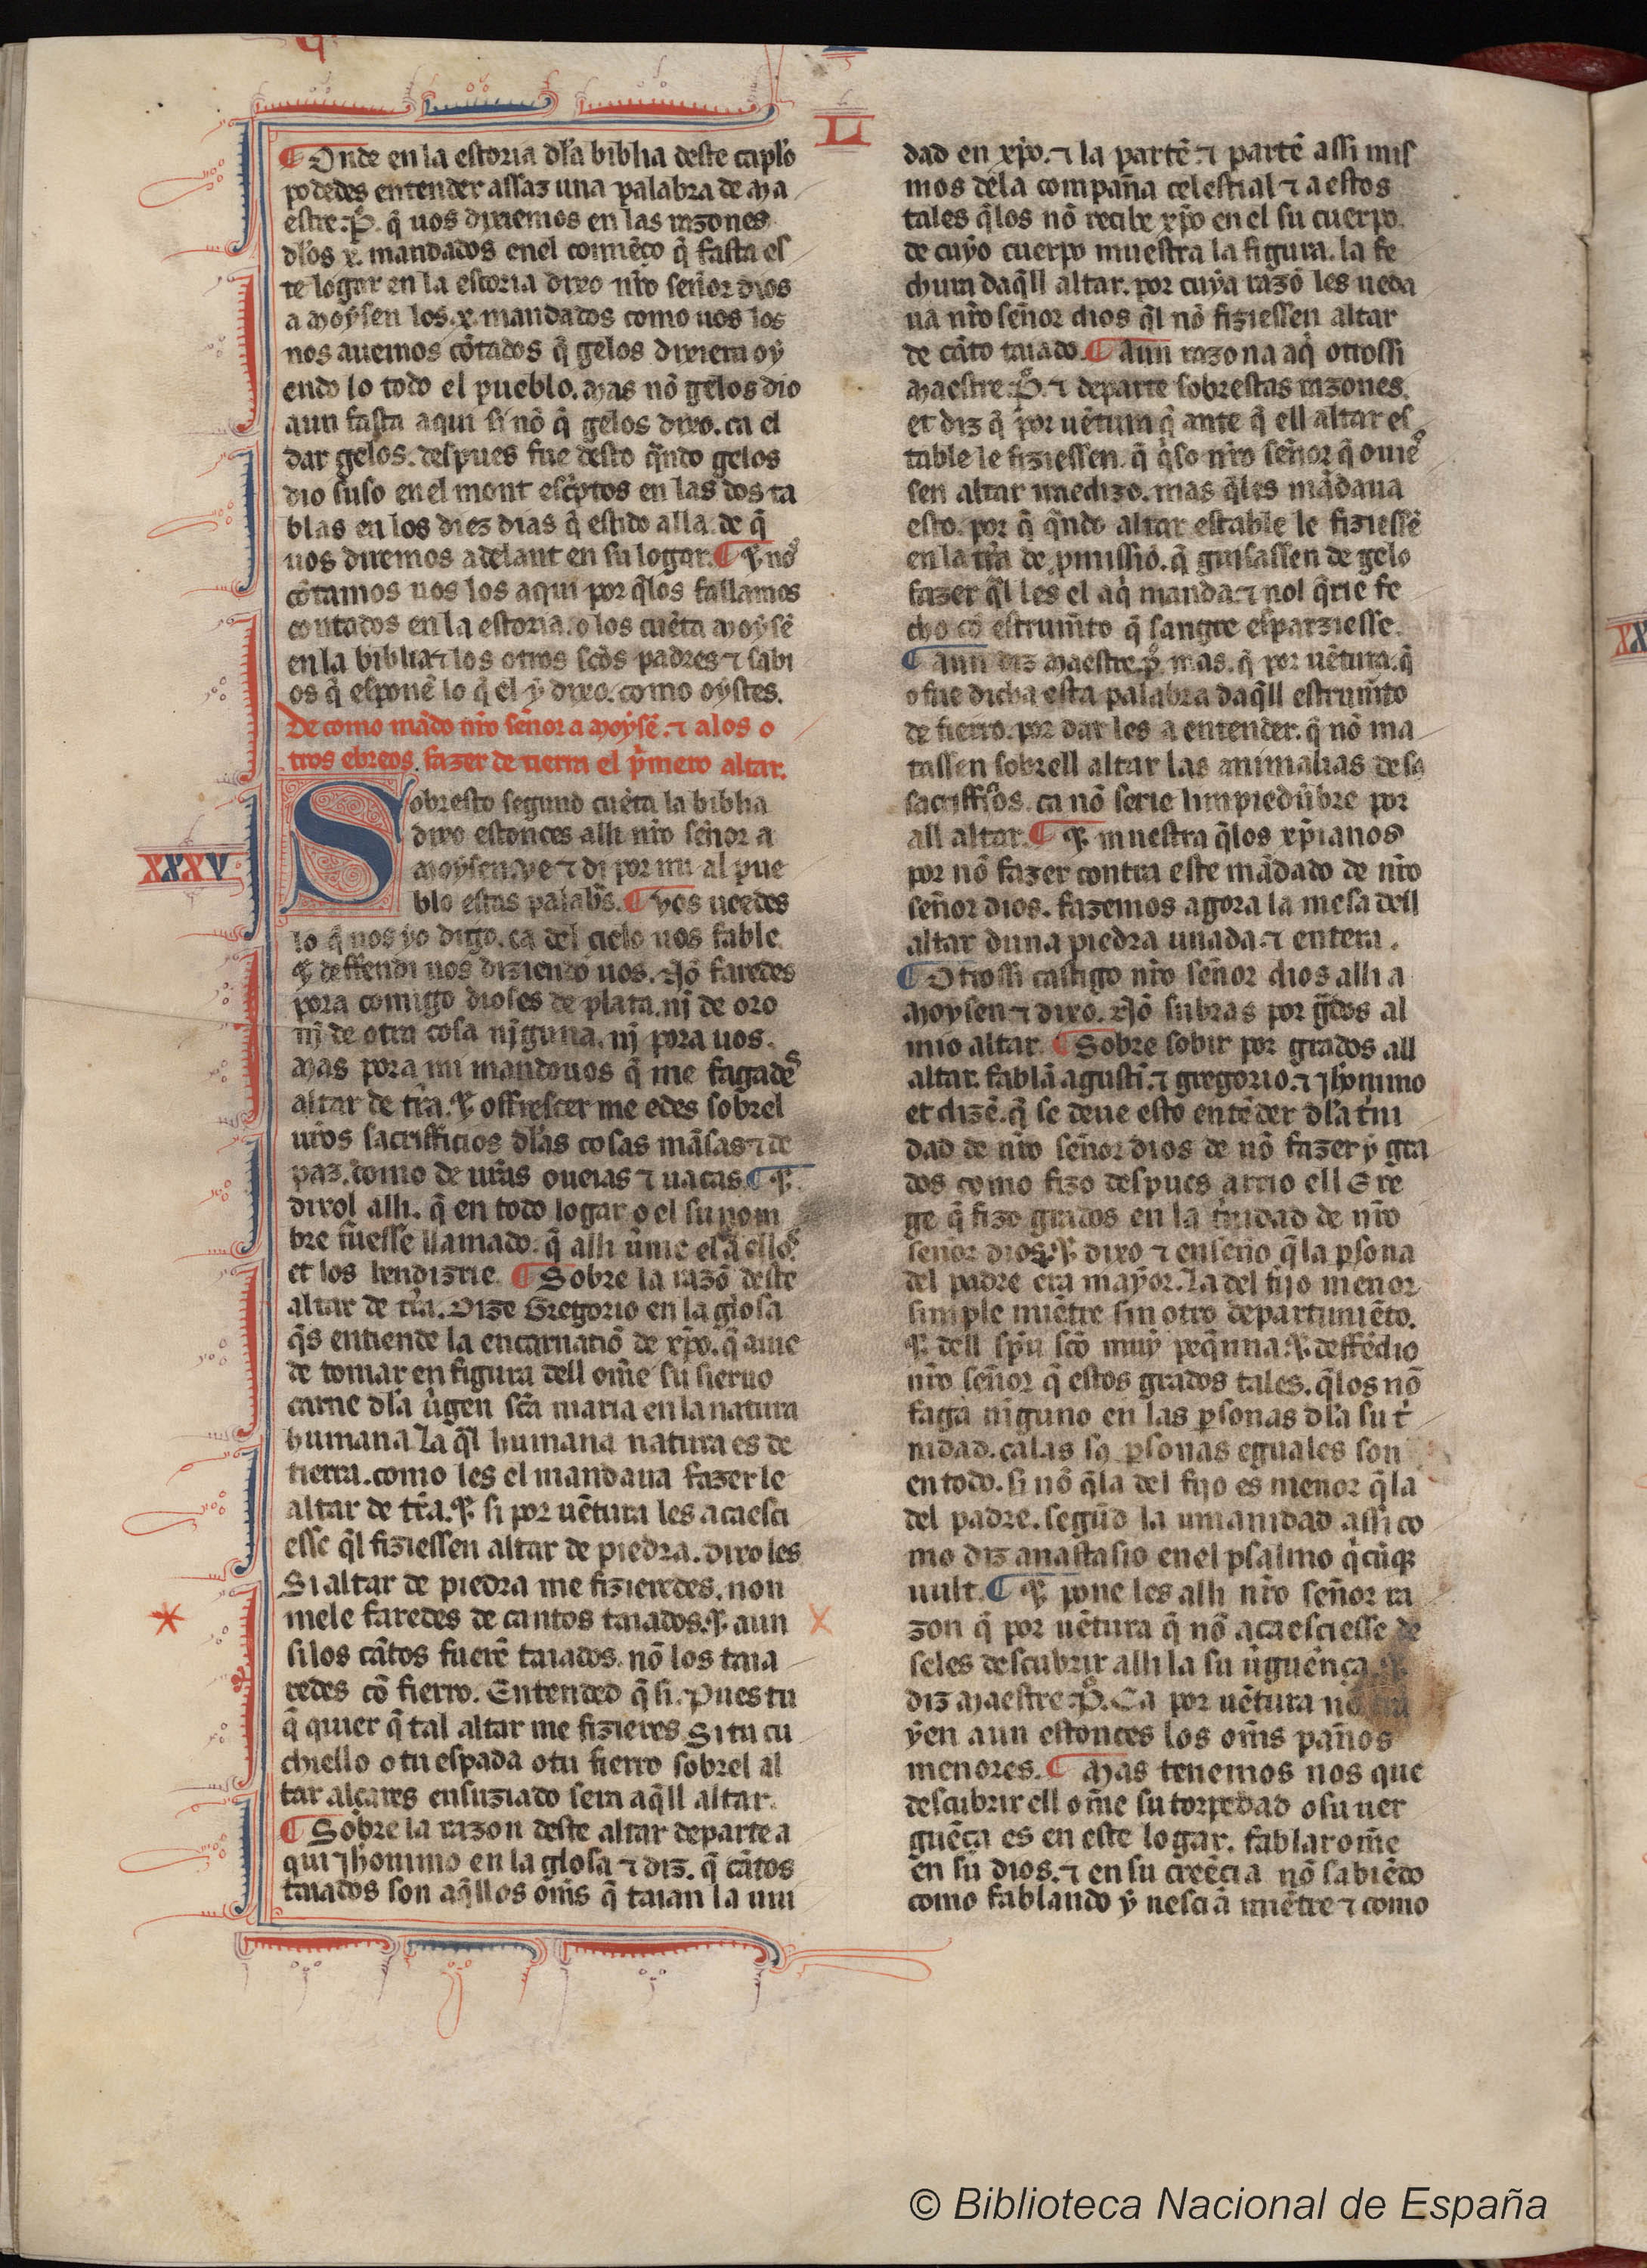 L
¶ Onde en la estoria dl̃a biblia deste capl̃o
podedes entender assaz una palabra de Ma
estre .P̊. q̃ uos dixiemos en las razones
dl̃os .x. mandados enel comiẽço q̃ fasta es
te logar en la estoria dixo nr̃o señor dios
a Moysen los .x. mandados como uos los
nos auemos cõtados q̃ gelos dixiera oy
endo lo todo el pueblo. Mas nõ gelos dio
aun fasta aqui si nõ q̃ gelos dixo. ca el
dar gelos. despues fue desto q̃ndo gelos
dio suso en el mont esc̃ptos en las dos ta
blas en los diez dias q̃ estido alla. de q̃
uos diremos adelant en su logar. ¶ ⁊ no
cõtamos nos los aqui por q̃los fallamos
contados en la estoria. o los cuẽta Moysẽ
en la biblia ⁊ los otros sc̃os padres ⁊ sabi
os q̃ esponẽ lo q̃ el y dixo. como oystes.
De como mãdo nr̃o señor a Moysẽ. ⁊ alos o
tros ebreos. fazer de tierra el p̃mero altar.
XXXV
Sobresto segund cuẽta la biblia
dixo estonces alli nr̃o señor a
Moysen. Ve ⁊ di por mi al pue
blo estas palab̃s. ¶ Vos ueedes
lo q̃ uos yo digo. ca del cielo uos fable.
⁊ deffendi uos diziendo uos. Nõ faredes
pora comigo dioses de plata. nj de oro
nj de otra cosa njguna. nj pora uos.
Mas pora mi mandouos q̃ me fagades
altar de tr̃a. ⁊ offrescer me edes sobrel
ur̃os sacrifficios dl̃as cosas mãsas ⁊ de
paz. como de ur̃as oueias ⁊ uacas. ¶ ⁊
dixol alli. q̃ en todo logar o el su nom
bre fuesse llamado. q̃ alli uirnie el a ellos
et los bendizrie. ¶ Sobre la razõ deste
altar de tr̃a. Dize Gregorio en la glosa
q̃s entiende la encarnatiõ de xp̃o. q̃ auie
de tomar en figura dell om̃e su sieruo
carne dl̃a uirgen sc̃a maria en la natura
humana. La q̃l humana natura es de
tierra. como les el mandaua fazer le
altar de tr̃a. ⁊ si por uẽtura les acaesci
esse q̃l fiziessen altar de piedra. dixo les
Si altar de piedra me fizieredes. non
mele faredes de cantos taiados. ⁊ aun
si los cãtos fuerẽ taiados. nõ los taia
redes cõ fierro. Entended q̃ si. Pues tu
q̃ quier q̃ tal altar me fizieres. Si tu cu
chiello o tu espada o tu fierro sobrel al
tar alçares ensuziado sera aq̃ll altar.
¶ Sobre la razon deste altar departe a
qui Jheronimo en la glosa ⁊ diz. q̃ cãtos
taiados son aq̃llos om̃s q̃ taian la uni
dad en xp̃o. ⁊ la partẽ. ⁊ partẽ assi mis
mos dela compaña celestial ⁊ a estos
tales q̃los nõ recibe xp̃o en el su cuerpo.
de cuyo cuerpo muestra la figura. la fe
chura daq̃ll altar. por cuya razõ les ueda
ua nr̃o señor dios q̃l nõ fiziessen altar
de cãto taiado. ¶ Aun razona aq̃ otrossi
Maestre .P̊. ⁊ departe sobrestas razones.
et diz q̃ por uẽtura q̃ ante q̃ ell altar es
table le fiziessen. q̃ q̃so nr̃o señor q̃ ouies
sen altar ɾaedizo. mas q̃les mãdaua
esto. por q̃ q̃ndo altar estable le fiziessẽ
en la tr̃a de pmissiõ. q̃ guisassen de gelo
fazer q̃l les el aq̃ manda. ⁊ nol q̃rie fe
cho cõ estrumẽto q̃ sangre esparziesse.
¶ Aun diz Maestre .P̊. mas. q̃ por uẽtura. q̃
o fue dicha esta palabra daq̃ll estrumẽto
de fierro. por dar les a entender. q̃ nõ ma
tassen sobrell altar las animalias de sꝰ
sacrifficios. ca nõ serie limpiedũbre por
all altar. ¶ ⁊ muestra q̃los xp̃ianos
por nõ fazer contra este mãdado de nr̃o
señor dios. fazemos agora la mesa dell
altar duna piedra unada ⁊ entera.
¶ Otrossi castigo nr̃o señor dios alli a
Moysen ⁊ dixo. Nõ subras por g̃dos al
mio altar. ¶ Sobre sobir por grados all
altar. fablã agustĩ. ⁊ gregorio. ⁊ Jheronimo
et dizẽ. q̃ se deue esto entẽder dl̃a trini
dad de nr̃o señor dios de nõ fazer y gra
dos como fizo despues arrio ell Ere
ge q̃ fizo grados en la trinidad de nr̃o
señor dios. ⁊ dixo ⁊ enseño q̃la ꝑsona
del padre era mayor. La del fijo menor
simple miẽtre sin otro departimiẽto.
⁊ dell sp̃u sc̃o muy peq̃nna. ⁊ deffẽdio
nr̃o señor q̃ estos grados tales. q̃los nõ
faga niguno en las ꝑsonas dl̃a su tri
nidad. ca las sꝰ ꝑsonas eguales son
en todo. si nõ q̃la del fijo es menor q̃la
del padre. segũd la umanidad. assi co
mo diz anastasio enel psalmo q̃cũqꝫ
uult. ¶ ⁊ pone les alli nr̃o señor ra
zon q̃ por uẽtura q̃ nõ acaesciesse de
seles descubrir alli la su uerguença. ⁊
diz Maestre .P̊. Ca por uẽtura nõ tra
yen aun estonces los om̃s paños
menores. ¶ Mas tenemos nos que
descubrir ell om̃e su torpedad o su uer
guẽça es en este logar. fablar om̃e
en su dios. ⁊ en su creẽcia nõ sabiẽdo
como fablando y nescia miẽtre ⁊ como
© Biblioteca Nacional de España